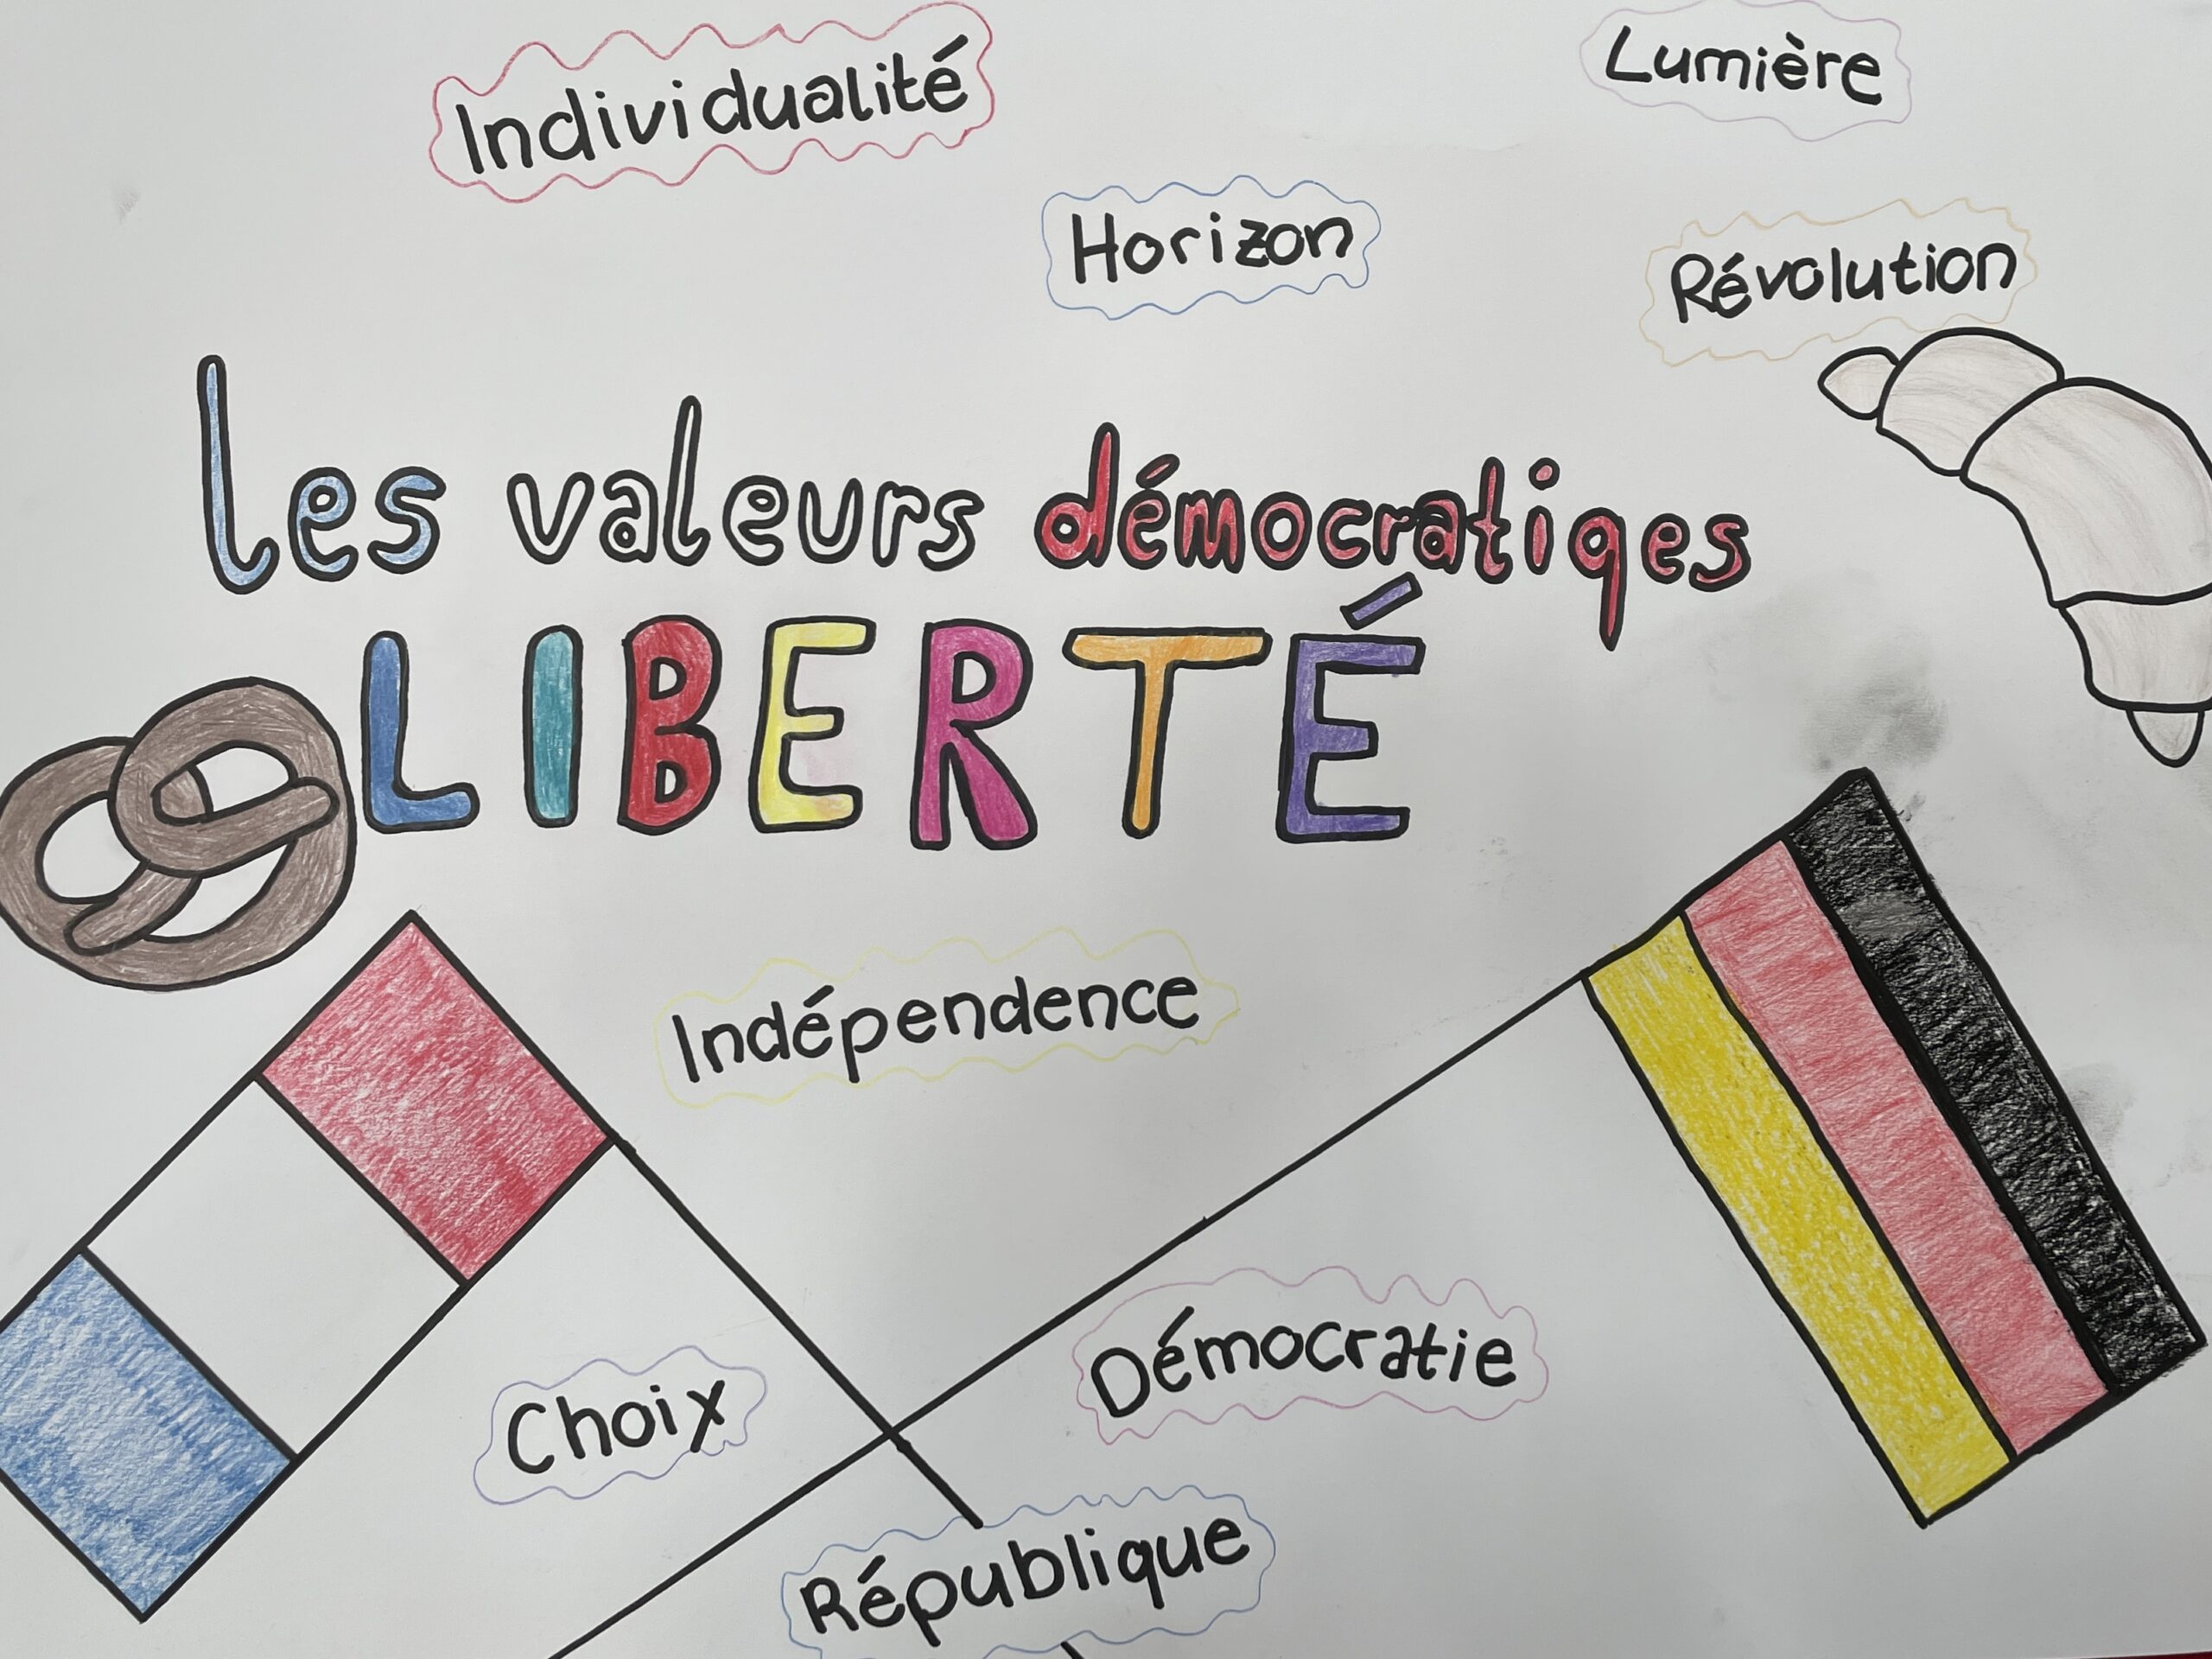 Individualité
Lumière
Horizon
Révolution
les valeurs démocratiqes
LIBERTÉ
Indépendence
Démocratie
Choix
République